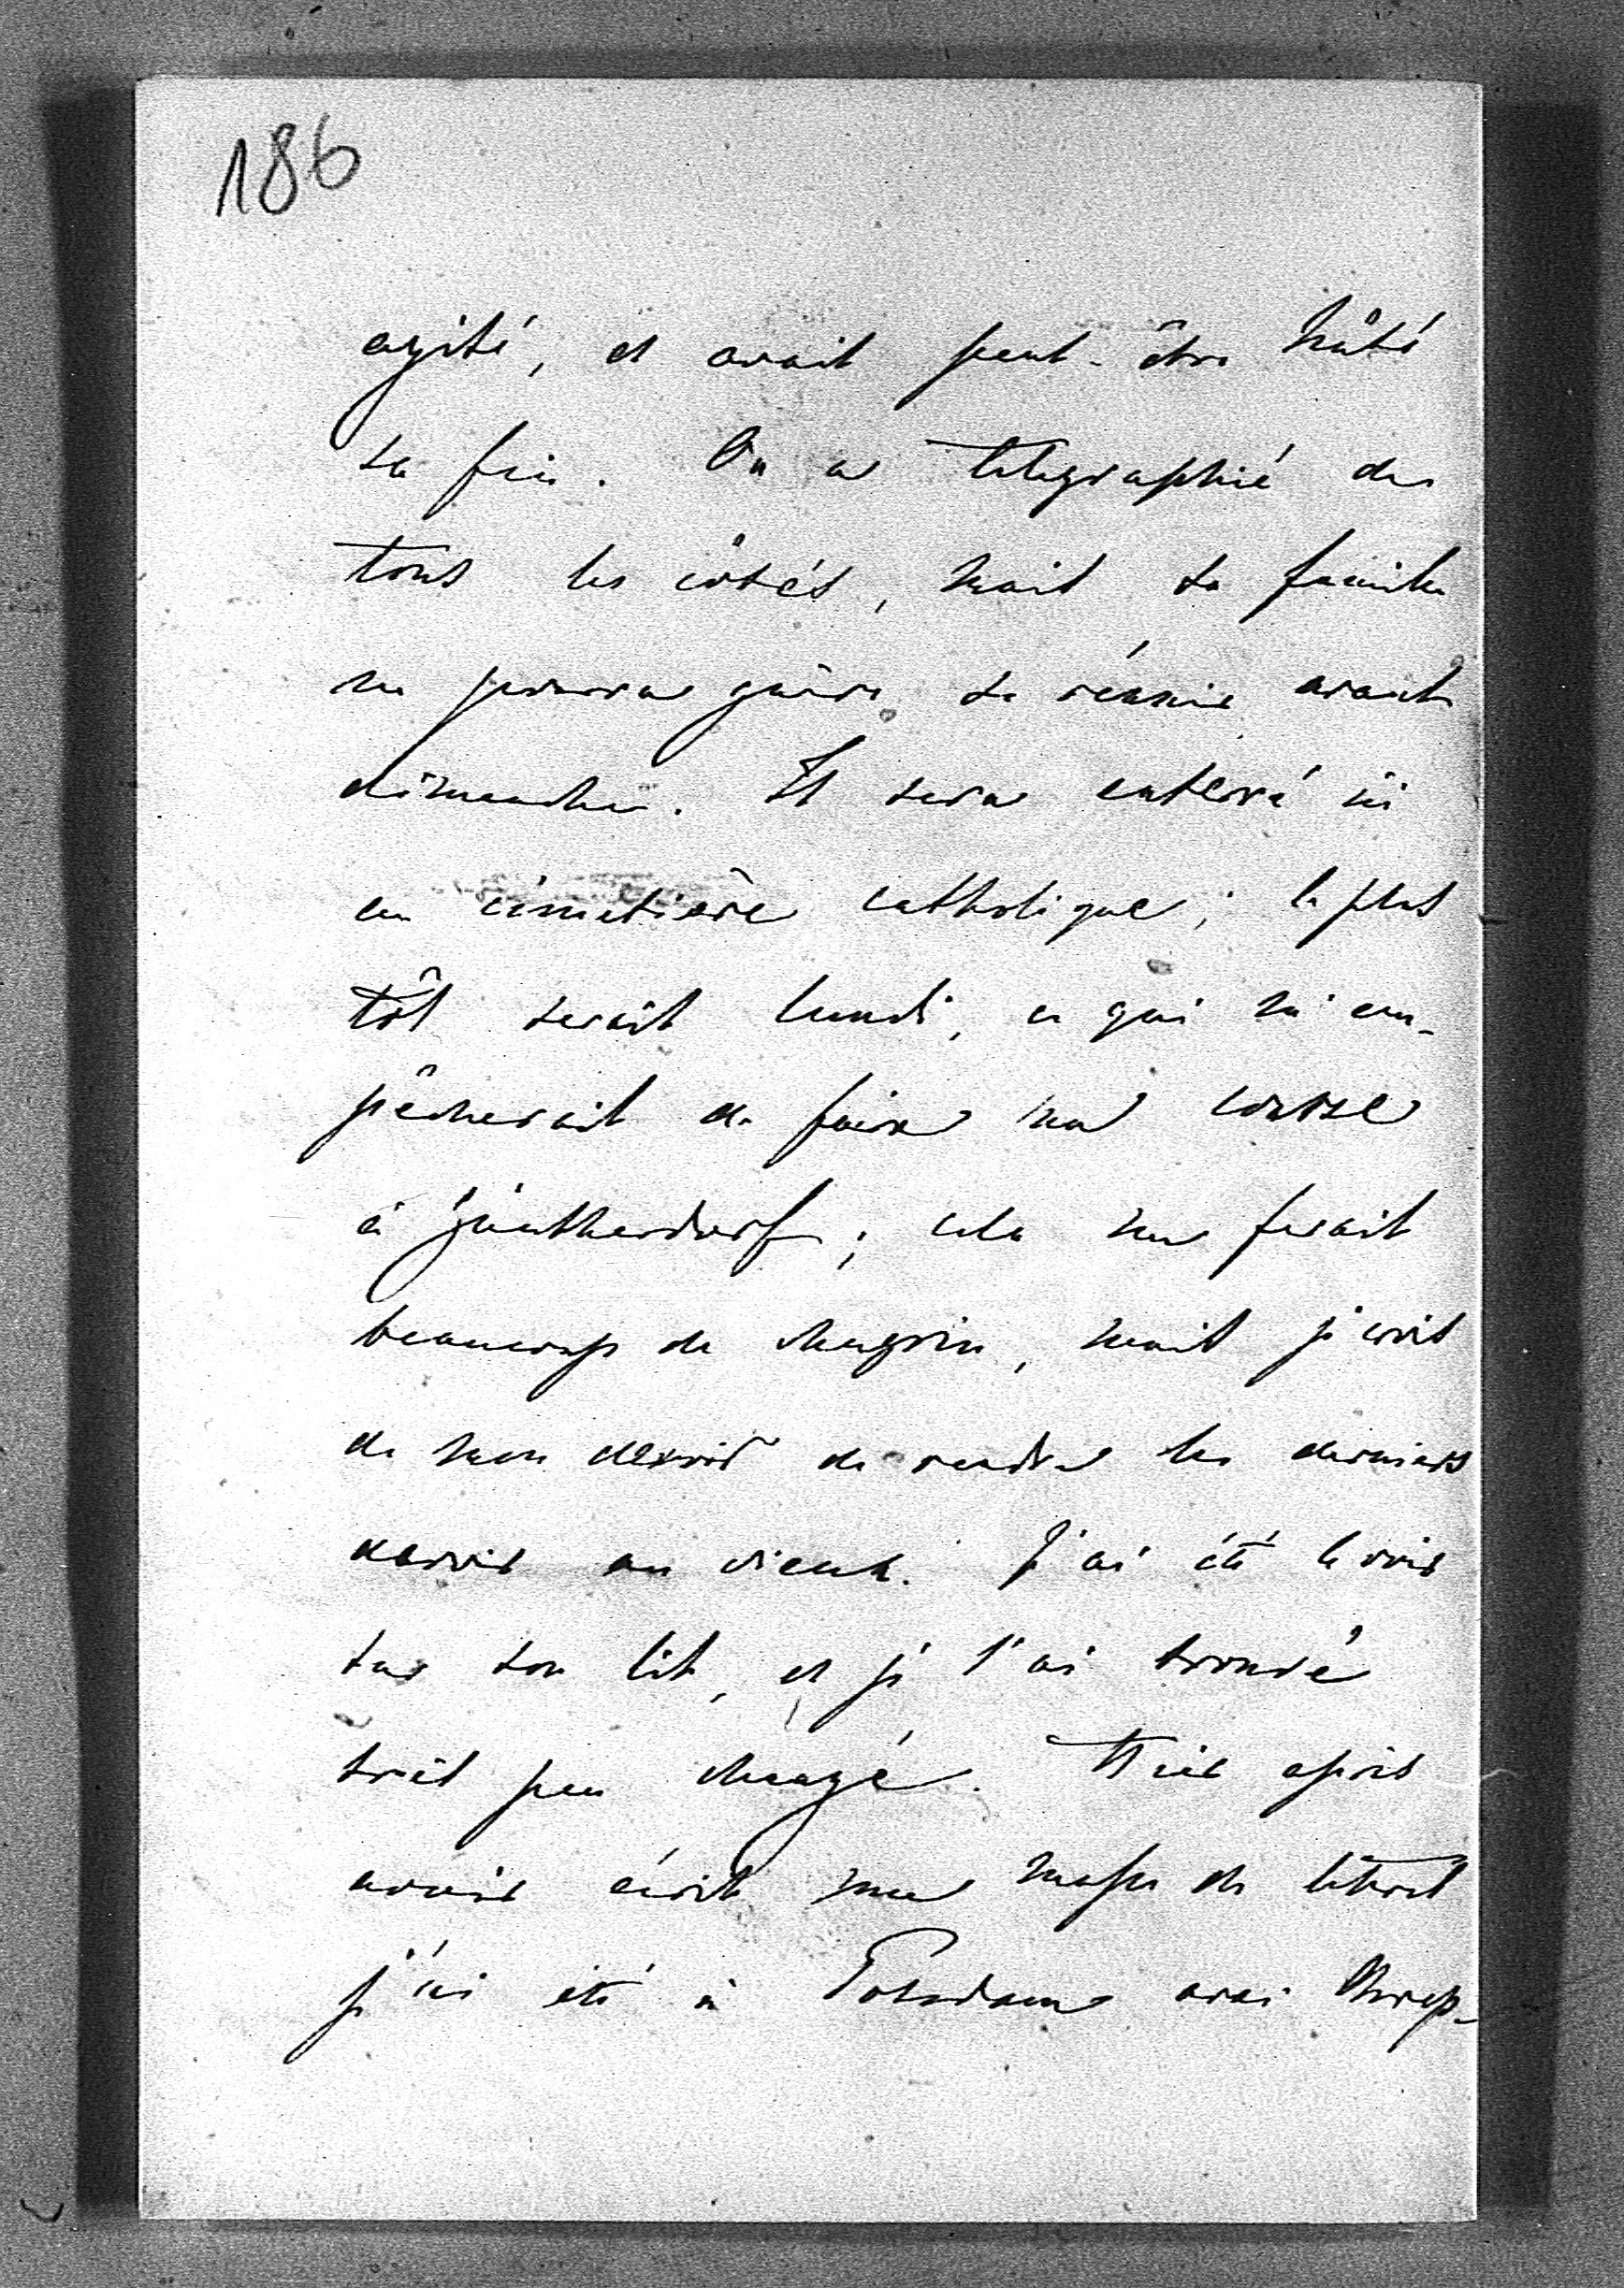 186
agité, et avait peut-être hâté
sa fin. On a telegraphié de
tous les côtés, mais sa famille
ne pourra guère se réunir avant
dimanche. Il sera enterré ici
au cimetière catholique; le plus
tôt serait lundi, ce qui m'em-
pêcherait de faire ma course
à Güntherdorf; cela me ferait
beaucoup de chagrin, mais je crois
de mon devoir de rendre les derniers
devoirs au vieux. J'ai été le voir
sur son lit, et je l'ai trouvé
très peu changé. Hier après
avoir écrit une masse de lettres
j'ai été à Potsdam avec